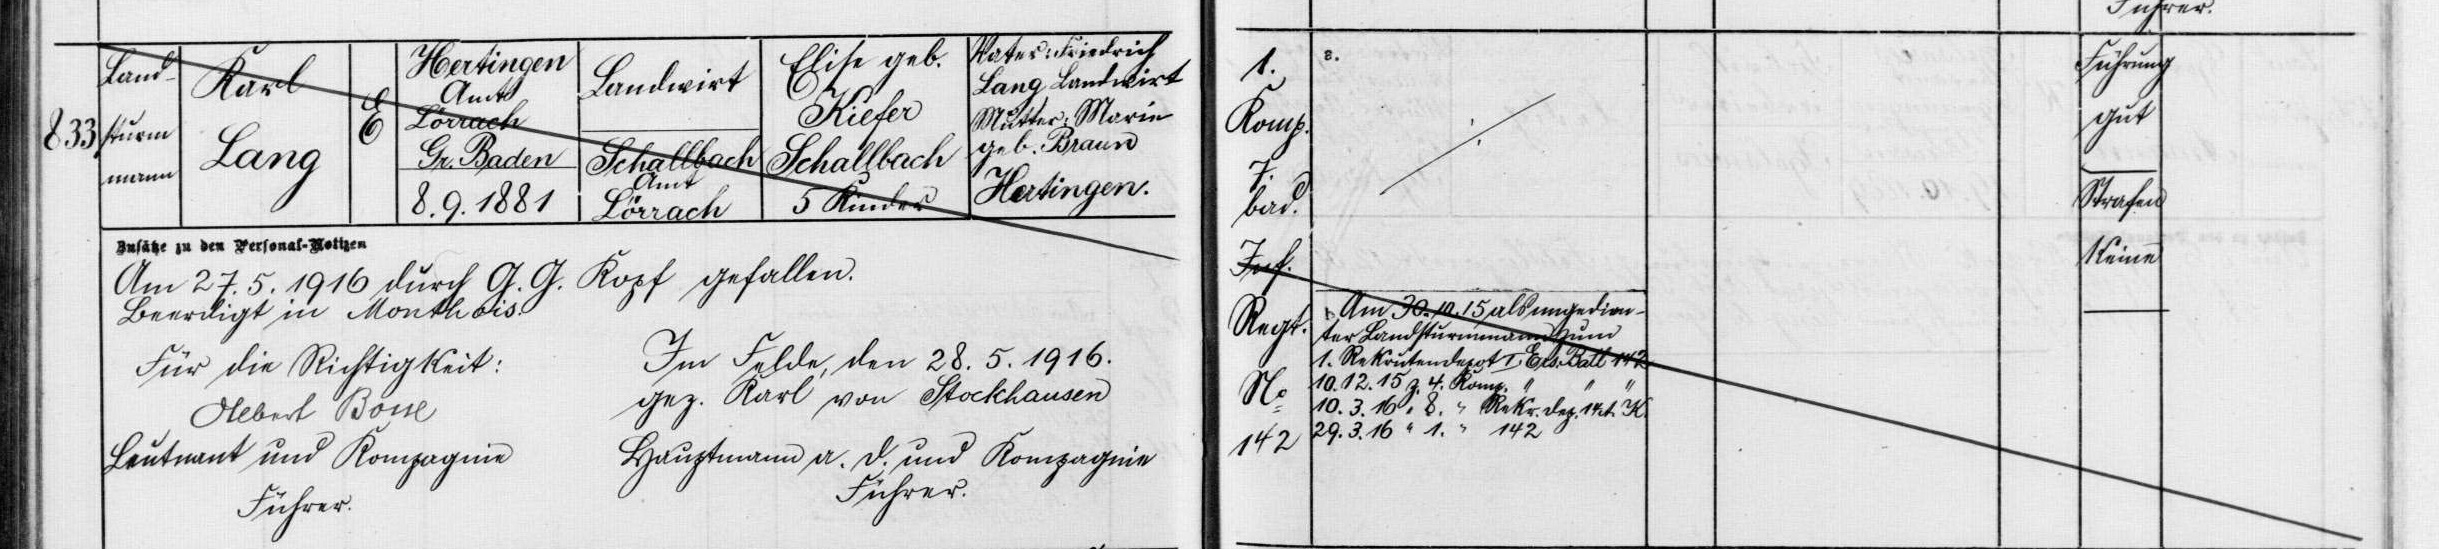 833
Land-
sturm
mann
Karl
Lang
E
E
Hertingen
Amt
Lörrach
Gr. Baden
8. 9. 1881
Landwirt
Schallbach
Amt
Lörrach
Elise geb.
Kiefer
Schallbach
5 Kinder
Vater: Friedrich
Lang Landwirt
Mutter: Marie
geb. Braun
Hertingen.
Zusätze zu den Personal-Notizen
Am 27. 5. 1916 durch G. G. Kopf gefallen.
Beerdigt in Monthois.
Für die Richtigkeit:
Albert
Leutnant und Kompagnie
Führer.
Im Felde, den 28. 5. 1916.
gez. Karl von Stockhausen
Hauptmann a. D. und Kompagnie
Führer.
1.
Komp.
7.
bad.
Inf.
Regt.
No
142
a.
Am 30. 10. 15 als ungedien-
ter Landsturmmann zum
1. Rekrutendepot I. Ers. Batl 142
10. 12. 15 z. 4. Komp. " " "
10. 3. 16 " 8. " Rekr. Dep. 14. A. K.
29. 3. 16 " 1. " 142
Führer.
Führung
gut
Strafen
Keine